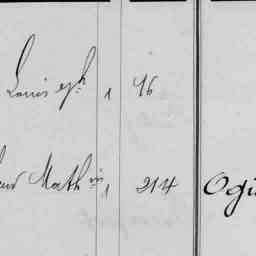 Louis Jh 1 46
Math in 1 214 Ogi